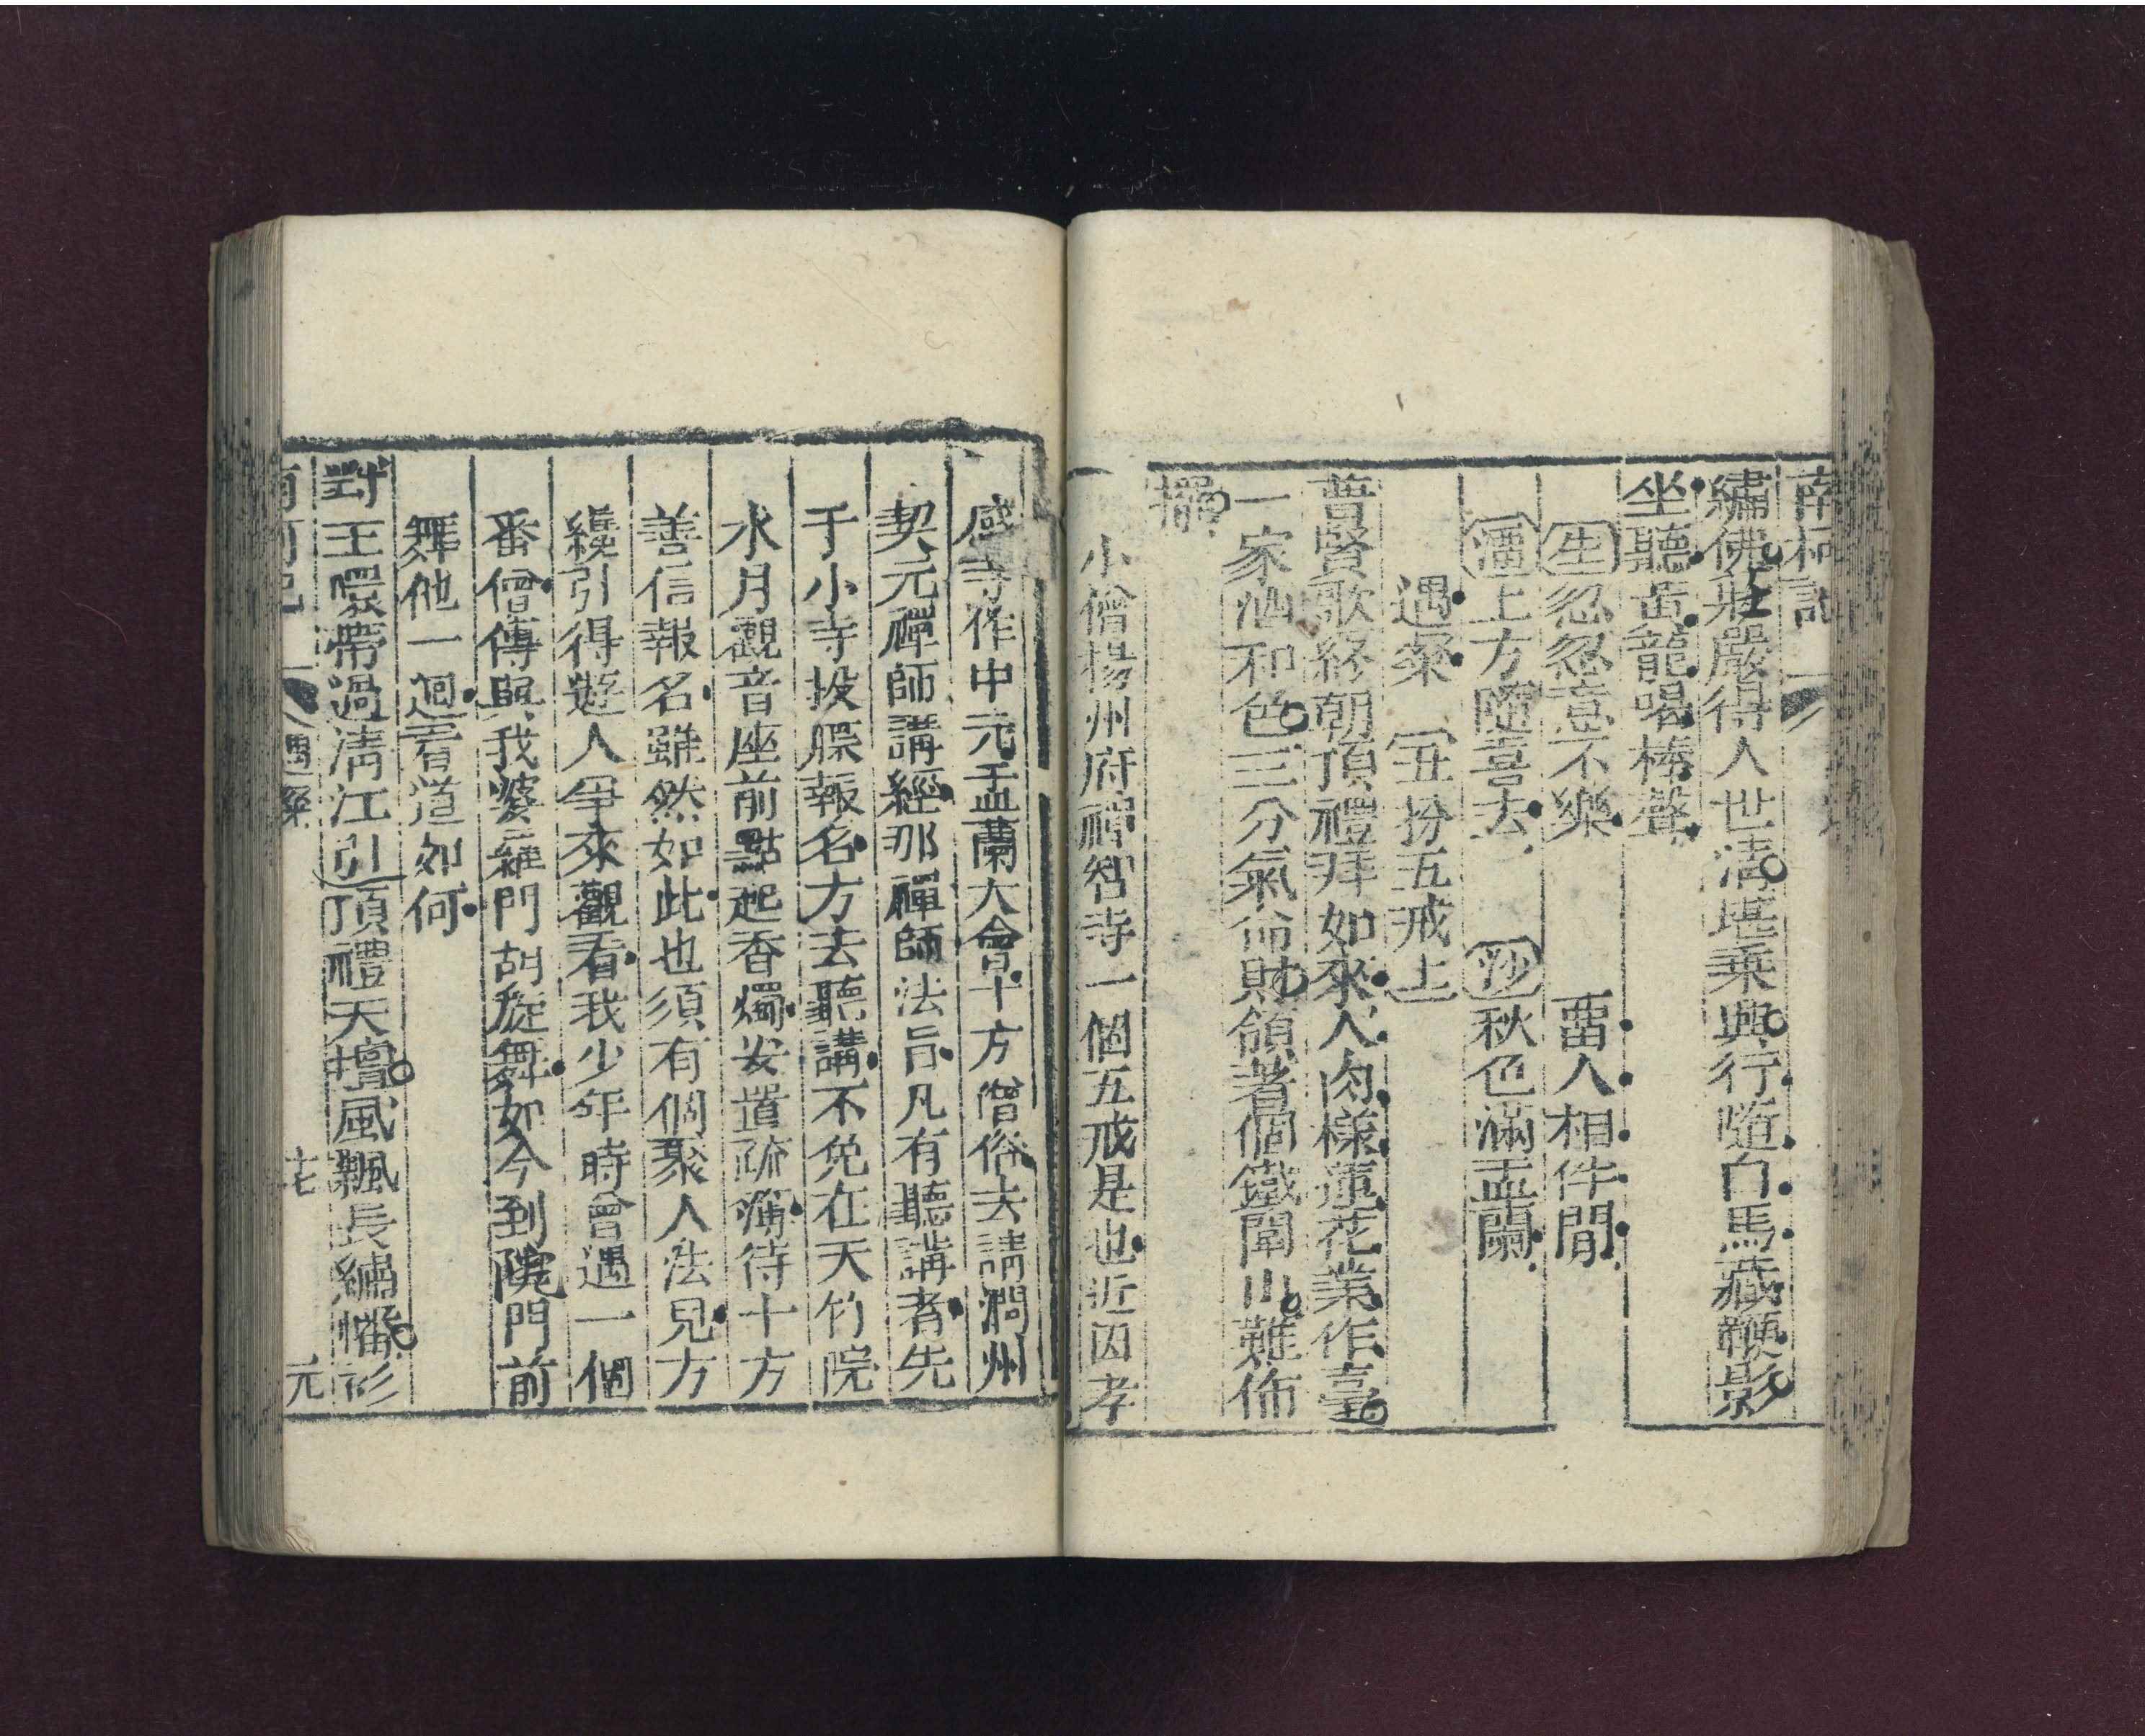 南柯記
繡佛莊嚴得人世淸堪乘興行隨白馬藏鞭影
坐聽黃龍喝棒聲
生忽忽意不樂 畱人相伴閒
溜上方隨喜去 沙秋色滿盂蘭
遇粲 丑扮五戒上
普賢歌終朝頂禮拜如來人肉樣蓮花業作臺
一家酒和色三分氣命財領著個鐵圍山難佈
擺
小僧揚州府禪智寺一個五戒是也近因孝
感寺作中元盂蘭大會十方僧俗去請潤州
契元禪師講經那禪師法旨凡有聽講者先
于小寺投牒報名方去聽講不免在天竹院
水月觀音座前點起香燭安置疏簿待十方
善信報名雖然如此也須有個聚人法兒方
纔引得遊人爭來觀看我少年時曾遇一個
番僧傳與我婆羅門胡旋舞如今到院門前
舞他一迴看道如何
對王環帶過淸江引頂禮天壇風飄長繡旛衫
南柯記 遇粲 元